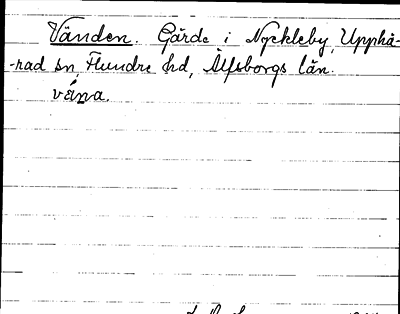 Vänden. Gärde i Nyckleby, Upphä-
-rad sn, Flundre hd, Älfsborgs län.
vä́na.